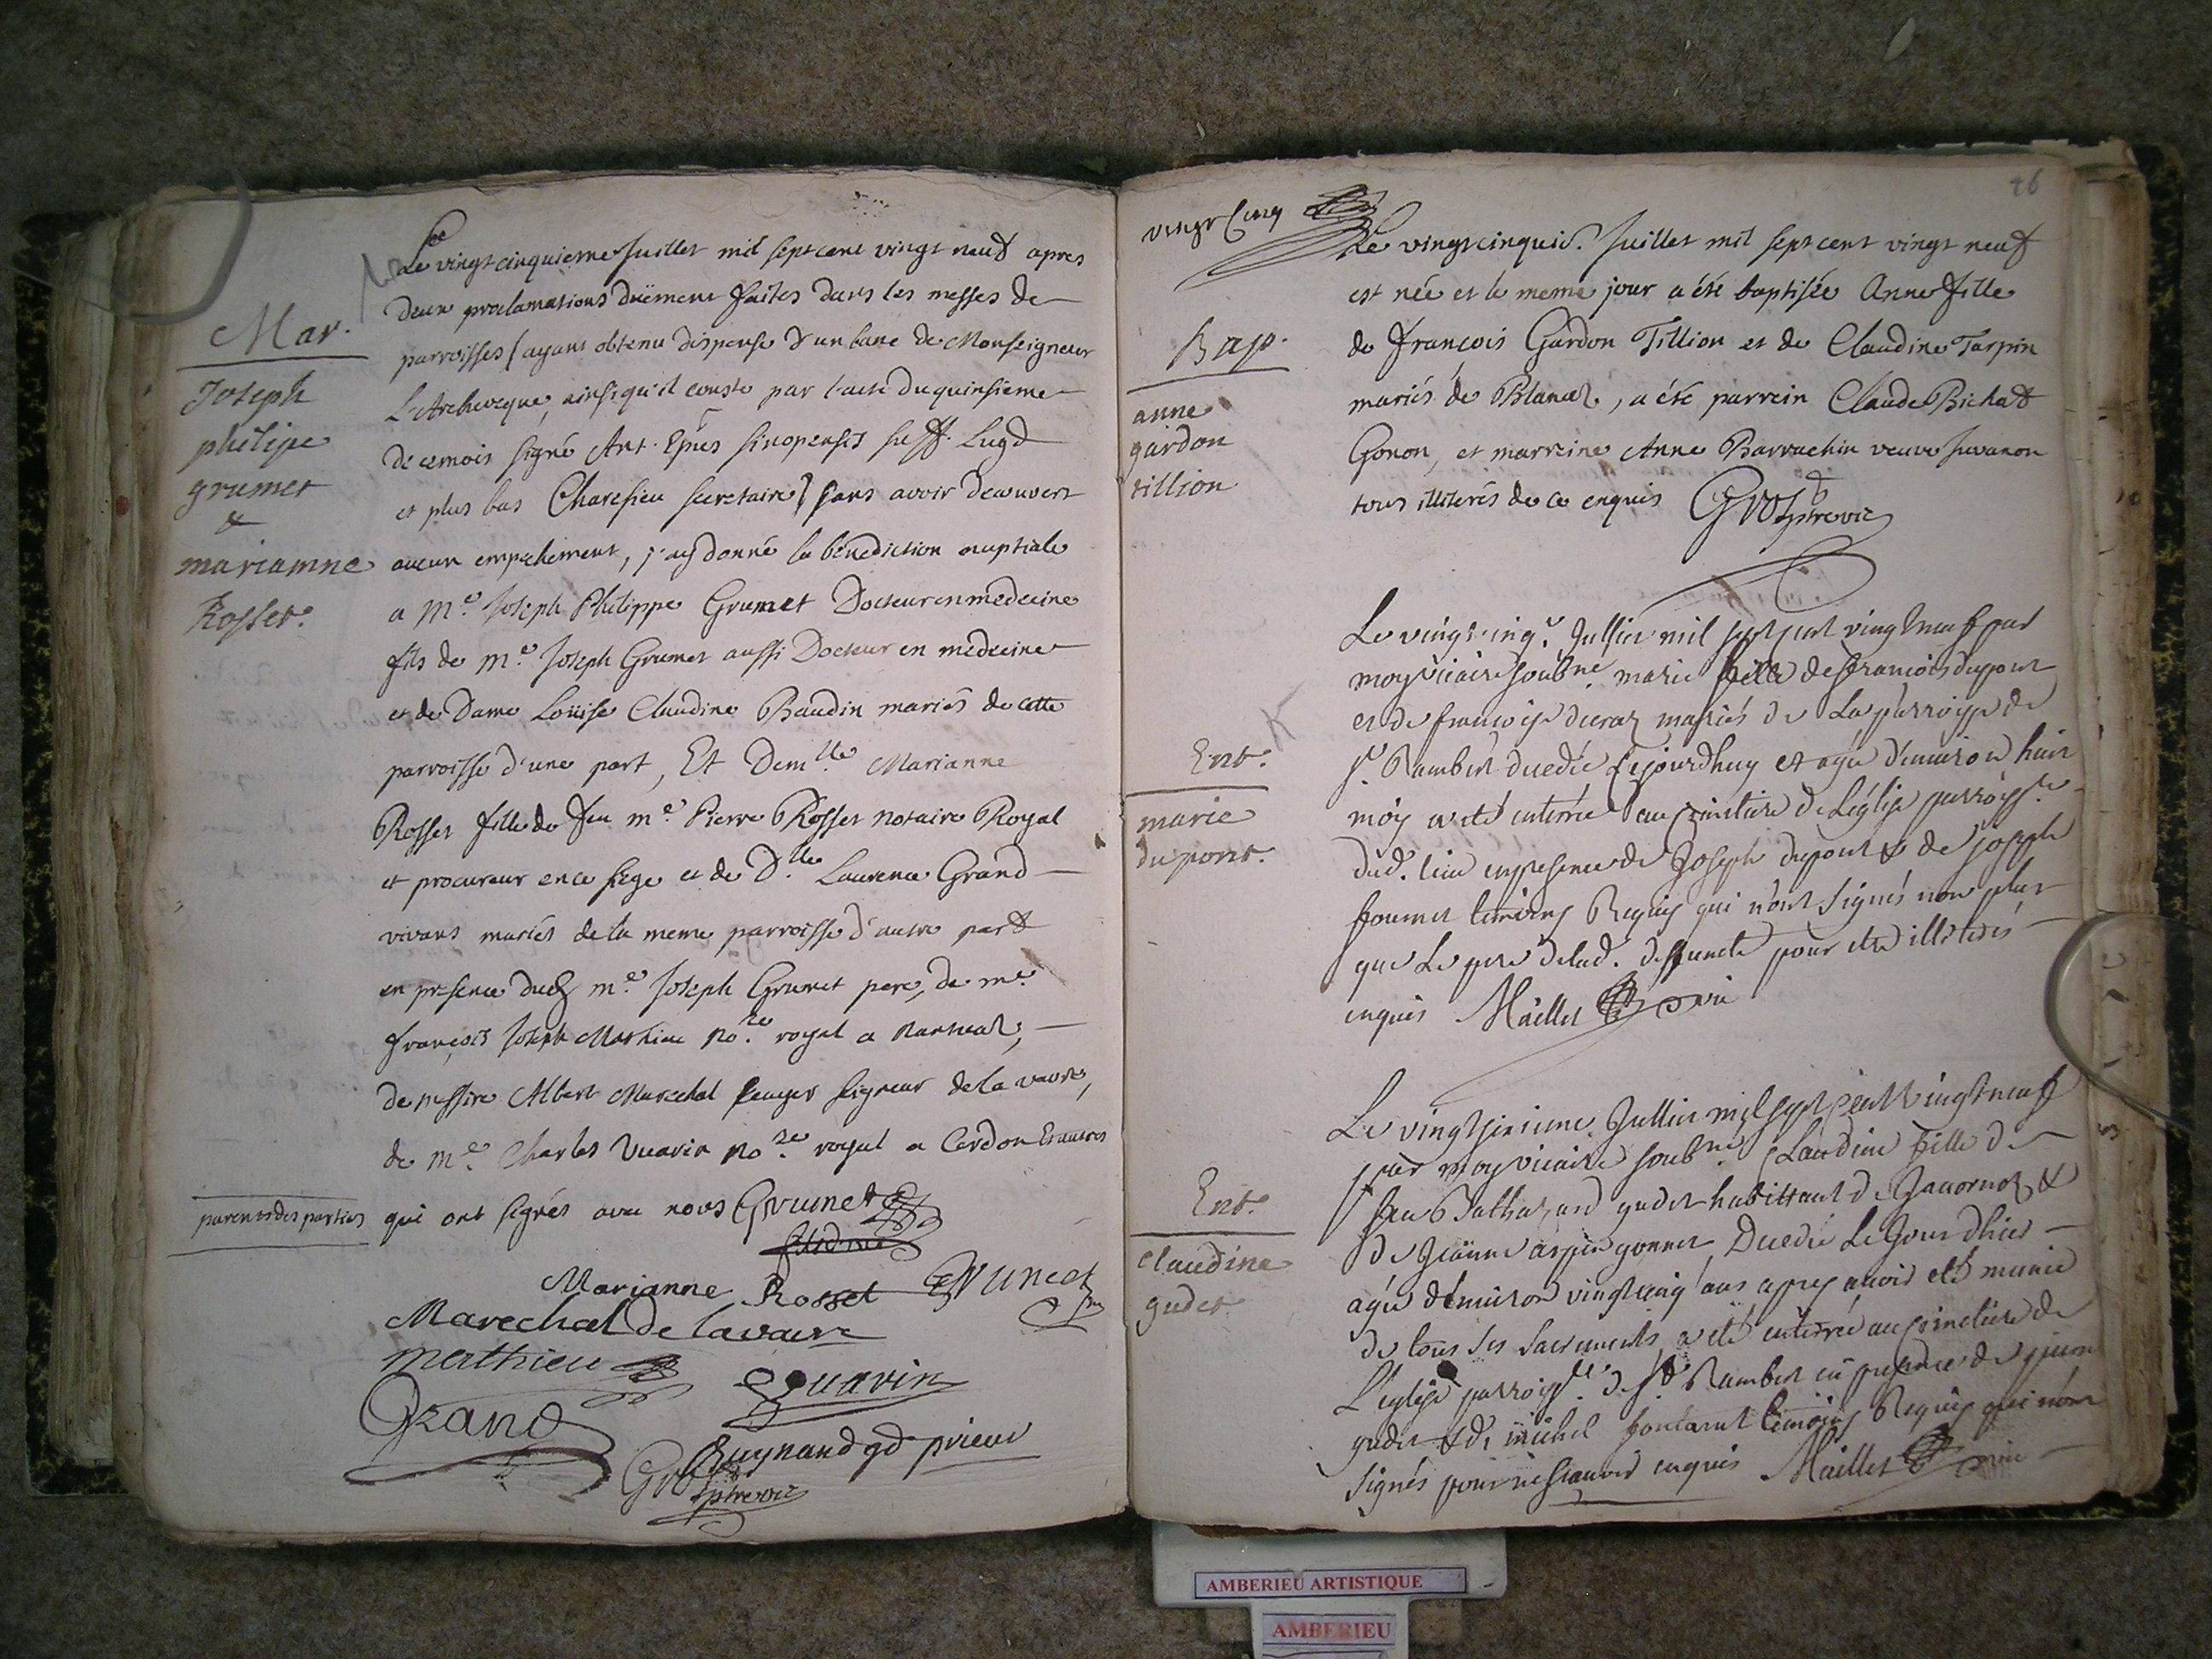 Mar.
Joseph
philipe
grumet
&
mariamne
Rosset.
Le vingt cinquieme Juillet mil sept cent vingt neuf apres
deux proclamations düement faites dans les messes de
parroisses (ayant obtenu dispense d'un banc de Monseigneur
L'Archeveque, ainsi qu'il conste par l'acte du quinsieme
de ce mois signé Ant. Epũs sinopensis suff. Lugd
et plus bas Charesieu secretaire) sans avoir decouvert
aucun empechement, j'ay donné la bénédiction nuptiale
a Me. Joseph Philippe Grumet Docteur en medecine
fils de Me. Joseph Grumet aussi Docteur en medecine
et de Dame Loüise Claudine Baudin mariés de cette
parroisse d'une part, Et Demlle Marianne
Rosset fille de feu me Pierre Rosset notaire Royal
et procureur en ce siege et de Dlle Laurence Grand
vivans mariés de la meme parroisse d'autre part
en presence dud me. Joseph Grumet pere, de me
françois Joseph Mathieu nore royal a
de messire Albert Marechal Ecuyer seigneur de la vavre,
de Me. Charles Vuarin nore royal a Cerdon Et autres
parents des parties
qui ont signés avec nous Grumet
Marianne Rosset Grumet
Marechal de lavavre
Mathieu
Vuarin
Grand
Guynand gd prieur
Gros ptre vic
26
vingt Cinq
Bap.
anne
gardon
tillion
Le vingt cinquie. Juillet mil sept cent vingt neuf
est née et le meme jour a été baptisée Anne fille
de françois Gardon Tillion et de Claudine Tarpin
mariés de Blanaz, a été parrein Claude Bichat
Gonon, et marreine Anne Barrachin veuve Juvanon
tous illiterés de ce enquis Gros ptre vic
Ent.
marie
dupont.
Le vingt cinqe. Jullier mil sept cent vingt neuf par
moy vicaire soubne marie fille de francois dupont
et de francoise mariés de La parroisse de
St. Rambert decedée Cejourdhuy et agée d'environ huit
moy a eté enterrée au Cimitiere de L'eglise parroisse
dud. lieu en presence de Joseph dupont & de joseph
fournet témoins Requis qui n'ont signés non plus
que Le pere delad. deffuncte pour etre illéterés
enquis Maillet vic
Ent.
claudine
gudet
Le vingt sixieme Jullier mil sept Cent vingt neuf
par moy vicaire soubne Claudine fille de
feu Balthazard gudet habittant de Javornoz &
de Jeanne arpin gonnet Decedée Le Jour dhier
agée d'environ vingt cinq ans apres avoir eté munie
de tous ses sacrements a eté enterrée au Cimetiere de
L'eglise parroisle. de St Rambert en presence de
gudet & de michel fontanet temoins Requis qui n'ont
signés pour ne sçavoir enquis Maillet vic
AMBERIEU ARTISTIQUE
AMBERIEU